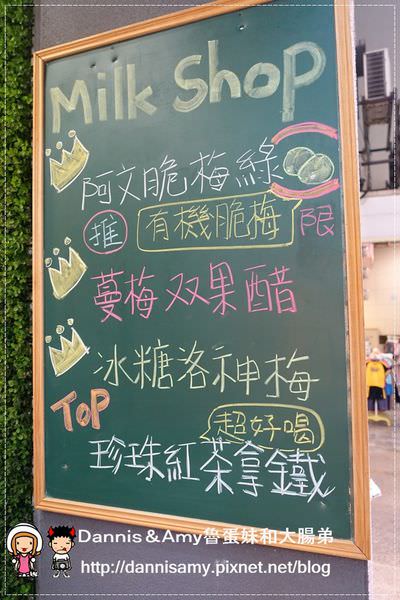 Milk Shop
阿文脆梅綠
推 有機脆梅 限
蔓梅双果醋
冰糖洛神梅
TOP
超好喝
珍珠紅茶拿鐵
Dannis & Amy魯蛋妹和大腸弟
http://dannisamy.pixnet.net/blog